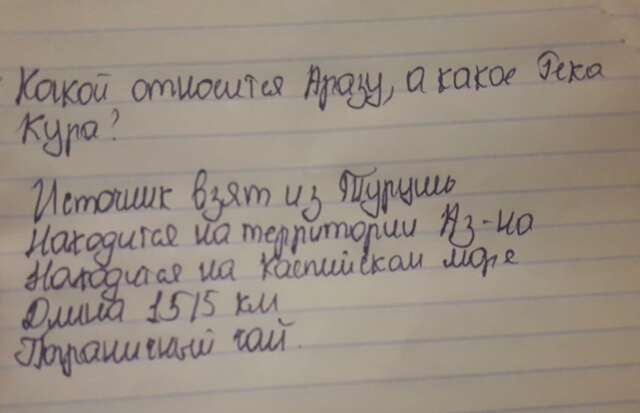 Какой относится Аразу, а какое Река
Кура?
Источник взят из Турции
Находится на территории Аз-на
Находится на Каспийском море
Длина 1515 км
Пограничный чай.